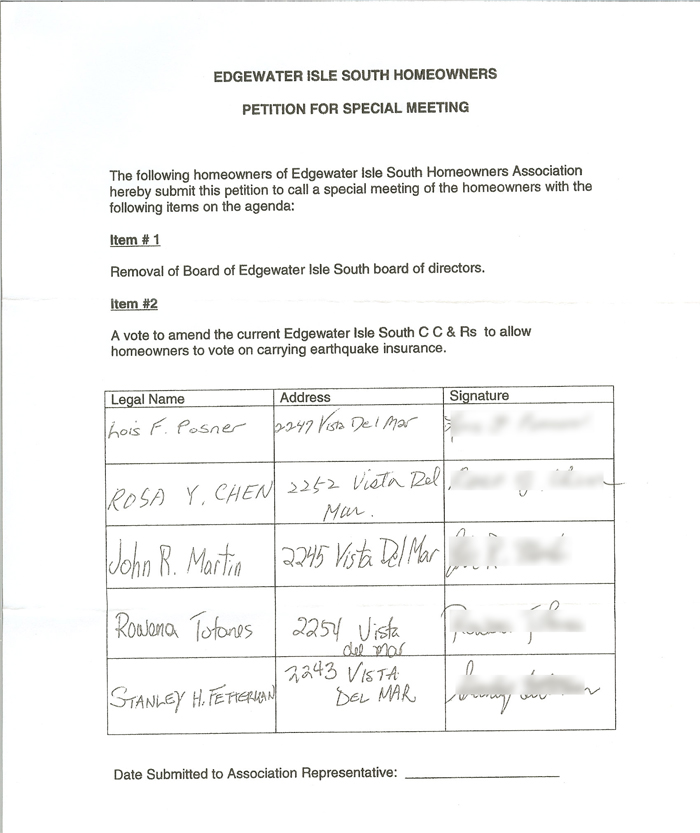 EDGEWATER ISLE SOUTH HOMEOWNERS
PETITION FOR SPECIAL MEETING
The following homeowners of Edgewater Isle South Homeowners Association
hereby submit this petition to call a special meeting of the homeowners with the
following items on the agenda:
Item # 1
Removal of Board of Edgewater Isle South board of directors.
Item #2
A vote to amend the current Edgewater Isle South C C & Rs to allow
homeowners to vote on carrying earthquake insurance.
Legal Name Address Signature
Lois F. Posner 2247 Vista Del Mar
ROSA Y. CHEN 2252 Vista Del
Mar.
John R. Martin 2245 Vista Del Mar
Rowena Totanes 2254 Vista
del mar
STANLEY H. FETTERMAN 2243 VISTA
DEL MAR
Date Submitted to Association Representative: